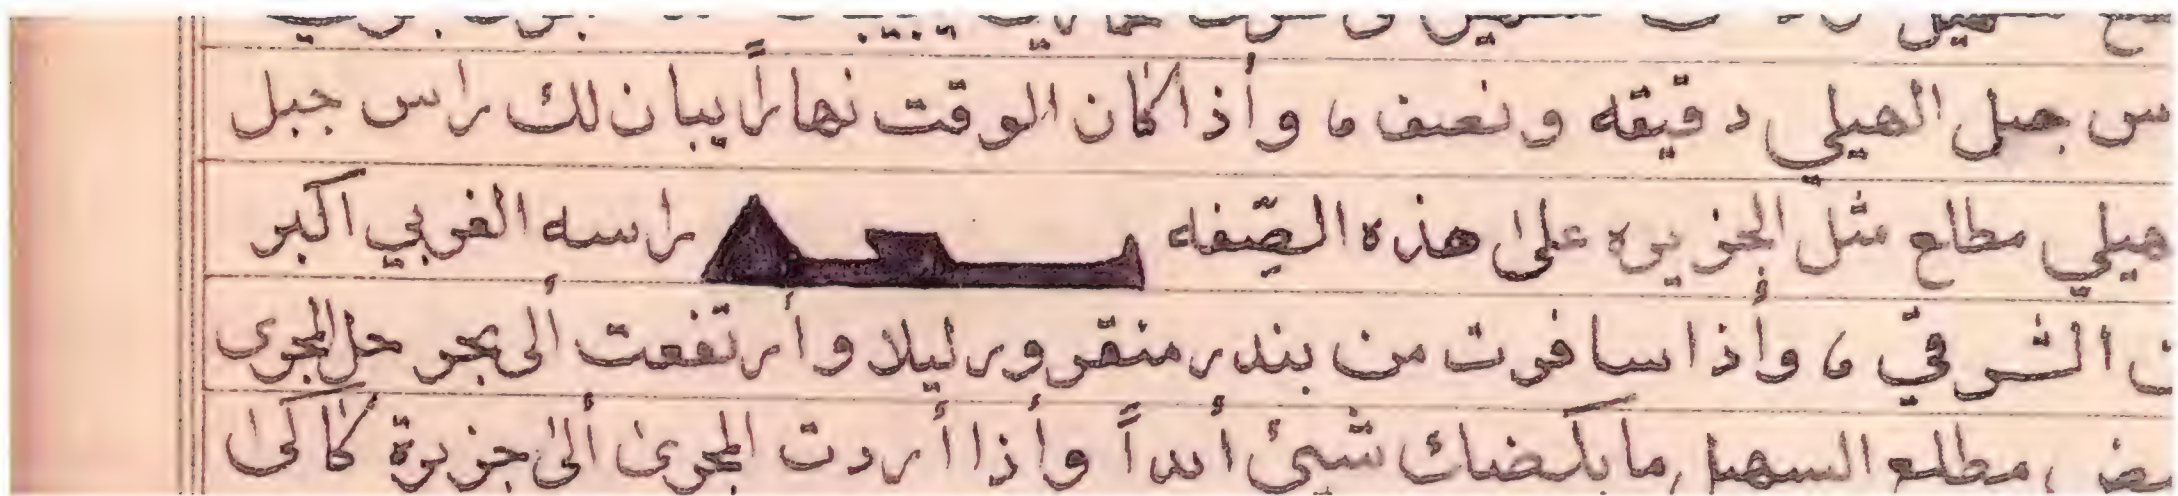 س جبل الهيلي دقيقه ونصف ، وأذا كان الوقت نهاراً يبان لك راس جبل
هيلي مطلع مثل الجزيره على هذه الصّفه راسه الغربي اكبر
الشرقيّ ، وأذا سافرت من بندر منقرور ليلا وأرتفعت ألى بحر حل المجرى
مطلع السهيل ما يكضك شيئ أبداً وأذا أردت المجرى ألى جزيرة كاكى